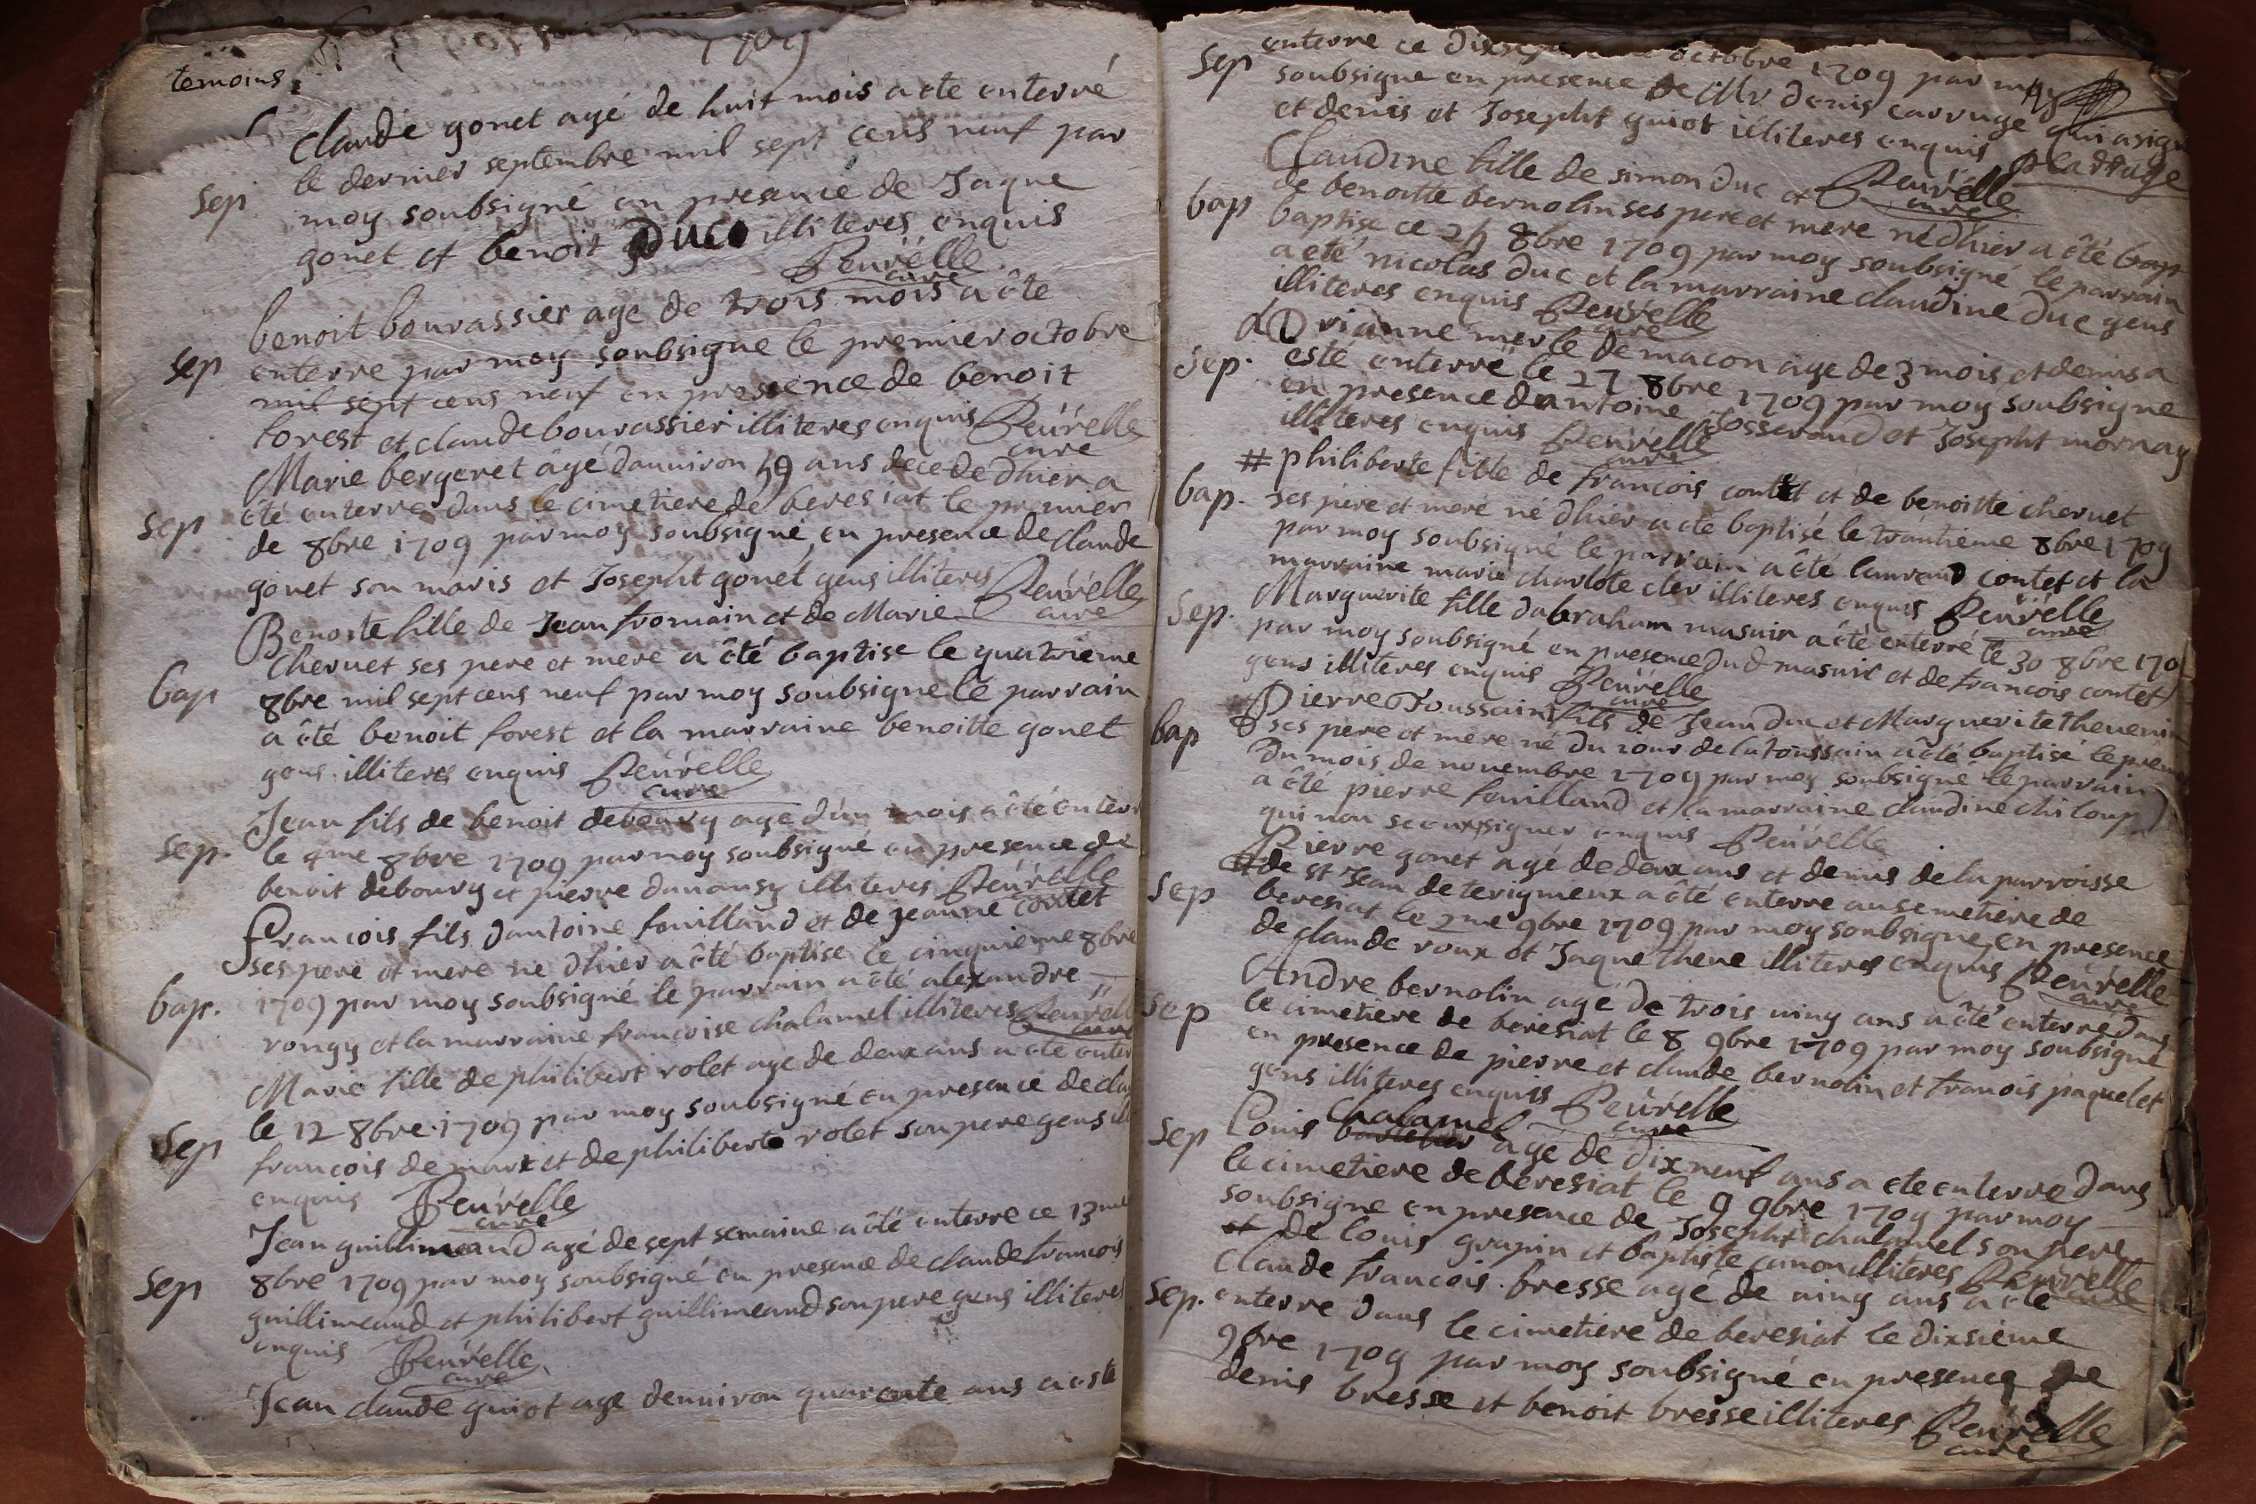 1709
temoins
Claude gonet agé de huit mois a ete enterré
le dernier septembre mil sept cens neuf par
sep moy soubsigné en presance de Jaque
gonet et benoit Duc illiteres enquis
Peürélle
cure
benoit bourassier age de trois mois a ôte
sep enterre par moy soubsigne le premier octobre
mil sept cens neuf en pressence de benoit
forest et claude bourassier illiteres enquis Peürélle
cure
Marie bergeret âgé danniron 49 ans decede dhier a
été enterre dans le cimetiere de beresiat le premier
sep de 8bre 1709 par moy soubsigné en presence de Claude
gonet son maris et Josepht gonet gens illiteres Peürélle
cure
Benoite fille de Jean fromain et de Marie
Chervet ses pere et mere a ôté baptise le quatrieme
bap 8bre mil sept cens neuf par moy soubsigne le parrain
a ôté benoit forest et la marraine benoitte gonet
gens illiteres enquis Peürélle
cure
Jean fils de benoit debourg age d'un mois a ôté enterr
sep. le 4me 8bre 1709 par moy soubsigné en presence de
benoit debourg et pierre dunansy illiteres Peürélle
François fils dantoine fouilland et de jeanne contet
ses pere et mere ne dhier a ôté baptise le cinquieme 8bre
bap. 1709 par moy soubsigné le parrain a ôté alexandre
rongy et la marraine francoise chalamel illiteres Peürell
cure
Marie fille de philibert rolet age de deux ans a ote enter
le 12 8bre 1709 par moy soubsigné en presence de cla
sep francois demarx et de philiberte rolet son pere gens ill
enquis Peürélle
cure
Jean guillimeaud agé de sept semaine a ôté enterre ce 13me
8bre 1709 par moy soubsigné en presence de claude francois
sep guillimeaud et philibert guillimeaud son pere gens illiteres
enquis Peürélle
cure
Jean claude guiot age denniron quarante ans a este
sep enterre ce octobre 1709 par moy
soubsigne en presence de Mr denis carruge qui a sign
et denis et Josepht guiot illiteres enquis
Peürélle
cure
Claudine fille de simon duc et
de benoitte bernolin ses pere et mere né dhier a ôté bap
bap baptise ce 24 8bre 1709 par moy soubsigné le parrain
a eté nicolas duc et la marraine claudine duc gens
illiteres enquis Peürélle
cure
drianne merle de macon age de 3 mois et demis a
sep. esté enterré le 27 8bre 1709 par moy soubsigne
en presence dantoine Josserand et Josepht mornay
illiteres enquis Peürélle
cure
# philiberte fille de francois contet et de benoitte chervet
bap. ses pere et mere né dhier a eté baptisé le trantieme 8bre 1709
par moy soubsigné le parrain a ôté laurend contet et la
marraine marie charlote cler illiteres enquis Peürélle
cure
sep. Marguerite fille dabraham masuir a été enterré le 30 8bre 170
par moy soubsigné en presence dud masuir et de francois contet
gens illiteres enquis Peürélle
cure
Pierre Toussain fils de Jean duc et Marguerite thevenin
bap ses pere et mere né du iour de la toussain a ôté baptisé le premi
du mois de novembre 1709 par moy soubsigne le parrain
a ôté pierre fouilland et la marraine claudine chiloup
qui non sceu signer enquis Peürélle
Pierre gonet agé de deux ans et demis de la parroisse
de st Jean de terigmeux a ôté enterre au semetiere de
sep beresiat le 2me 9bre 1709 par moy soubsigne en presence
de claude roux et Jaque theve illiteres enquis Peürélle
cure
Andre bernolin agé de trois ving ans a ôté enterre dans
sep le cimetiere de beresiat le 8 9bre 1709 par moy soubsigné
en presence de pierre et claude bernolin et franois paquelet
gens illiteres enquis Peürélle
cure
chalamel
sep Louis age de dix neuf ans a ete enterre dans
le cimetiere de beresiat le 9 9bre 1709 par moy
soubsigne en presence de Josepht chalamel son pere
et de louis grapin et baptiste canon illiteres Peürélle
cure
Claude francois bresse agé de ving ans a ôté
sep. enterre dans le cimetiere de beresiat le dixsieme
9bre 1709 par moy soubsigné en presence de
denis bresse et benoit bresse illiteres Peürélle
cure